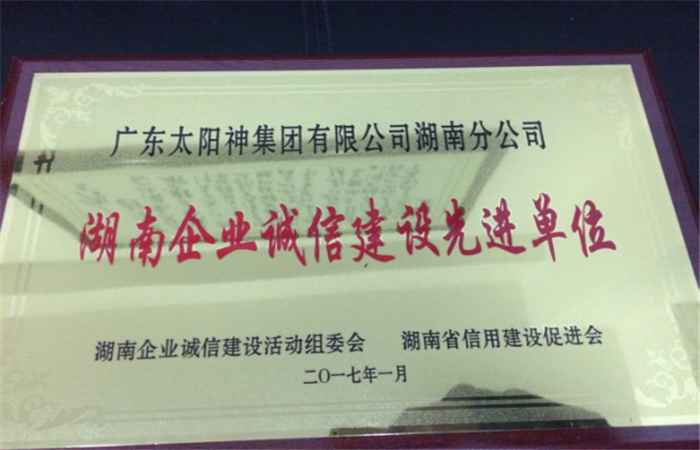 广东太阳神集团有限公司湖南分公司
湖南企业诚信建设先进单位
湖南企业诚信建设活动组委会 湖南省信用建设促进会
二〇一七年一月